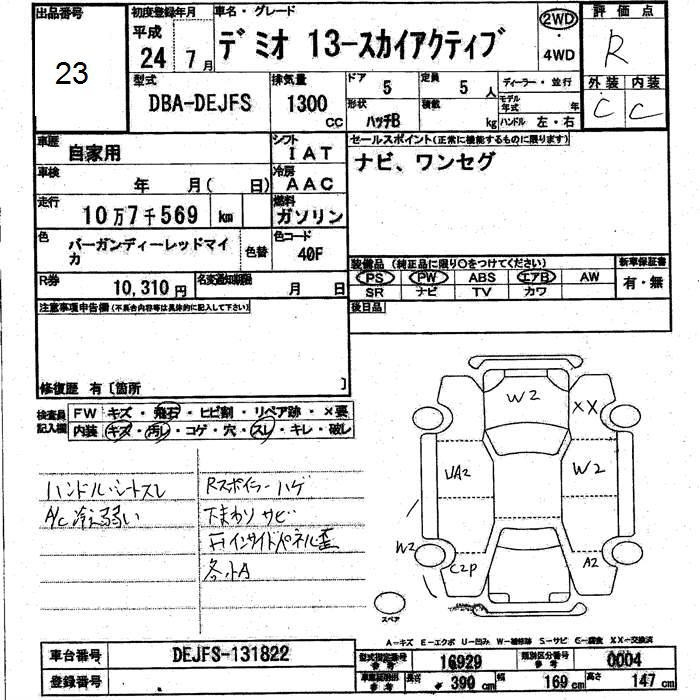 出品番号
23
初度登録年月
平成
24年 7月
車名・グレード
デミオ 13-スカイアクティブ
2WD
・
4WD
評価点
R
外装 内装
C C
型式
DBA-DEJFS
排気量
1300
CC
ドア
5
定員
5人
形状
ハッチB
積載
kg
ディーラー・並行
モデル年式
年
ハンドル 左・右
車歴
自家用
シフト
IAT
車検
年 月( 日)
冷房
AAC
走行
10万7千569 km
燃料
ガソリン
色
バーガンディーレッドマイカ
色替
色コード
40F
R券
10,310円
名変通知期限
月 日
セールスポイント(正常に機能するものに限ります)
ナビ、ワンセグ
装備品 (純正品に限り○をつけてください)
PS PW ABS エアB AW
SR ナビ TV カワ
新車保証書
有・無
後日品
注意事項申告欄(不具合内容等は具体的に記入して下さい)
修復歴 有〔箇所 〕
検査員記入欄
FW キズ・飛石・ヒビ割・リペア跡・×要
内装 キズ・汚れ・コゲ・穴・スレ・キレ・破レ
ハンドル・シートスレ
A/C 冷え弱い
Rスポイラー ハゲ
下まわり サビ
右インサイドパネル歪
各小A
W2
XX
UA2
W2
W2
C2P
A2
スペア
A-キズ E-エクボ U-凹み W-補修跡 S-サビ C-腐食 XX-交換済
車台番号
DEJFS-131822
登録番号
型式指定番号
参考
16929
類別区分番号
参考
0004
参考
長さ
390 cm
幅
169 cm
高さ
147 cm